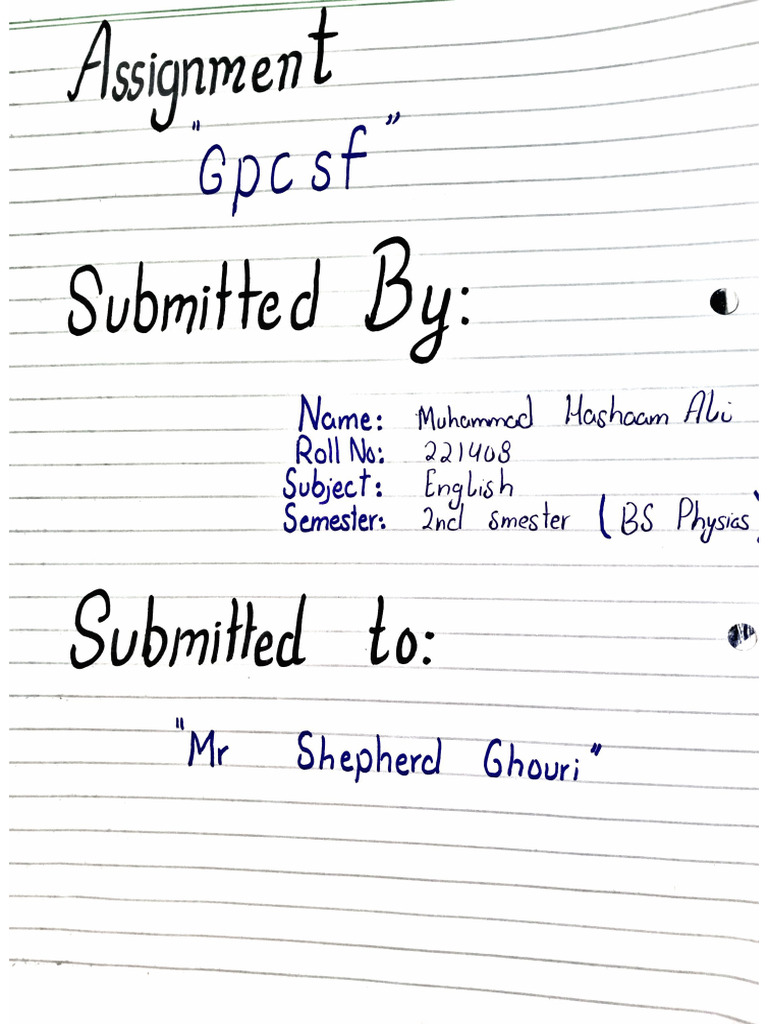 Assignment
"Gpcsf"
Submitted By:
Name: Muhammad Hashaam Ali
Roll No: 221408
Subject: English
Semester: 2nd smester (BS Physics)
Submitted to:
"Mr Shepherd Ghouri"